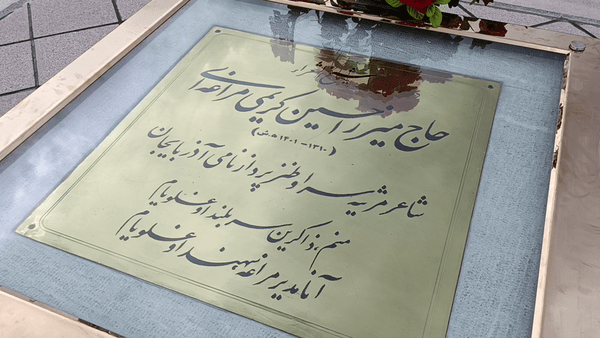 مزار
حاج میرزا حسین کریمی مراغه‌ای
(۱۳۱۰-۱۴۰۱ ه.ش)
شاعر مرثیه سرا و طنز پرداز نامی آذربایجان
منم، ذاکرین سربلند اوغلویام
آنا مدیر مراغه سهند اوغلویام